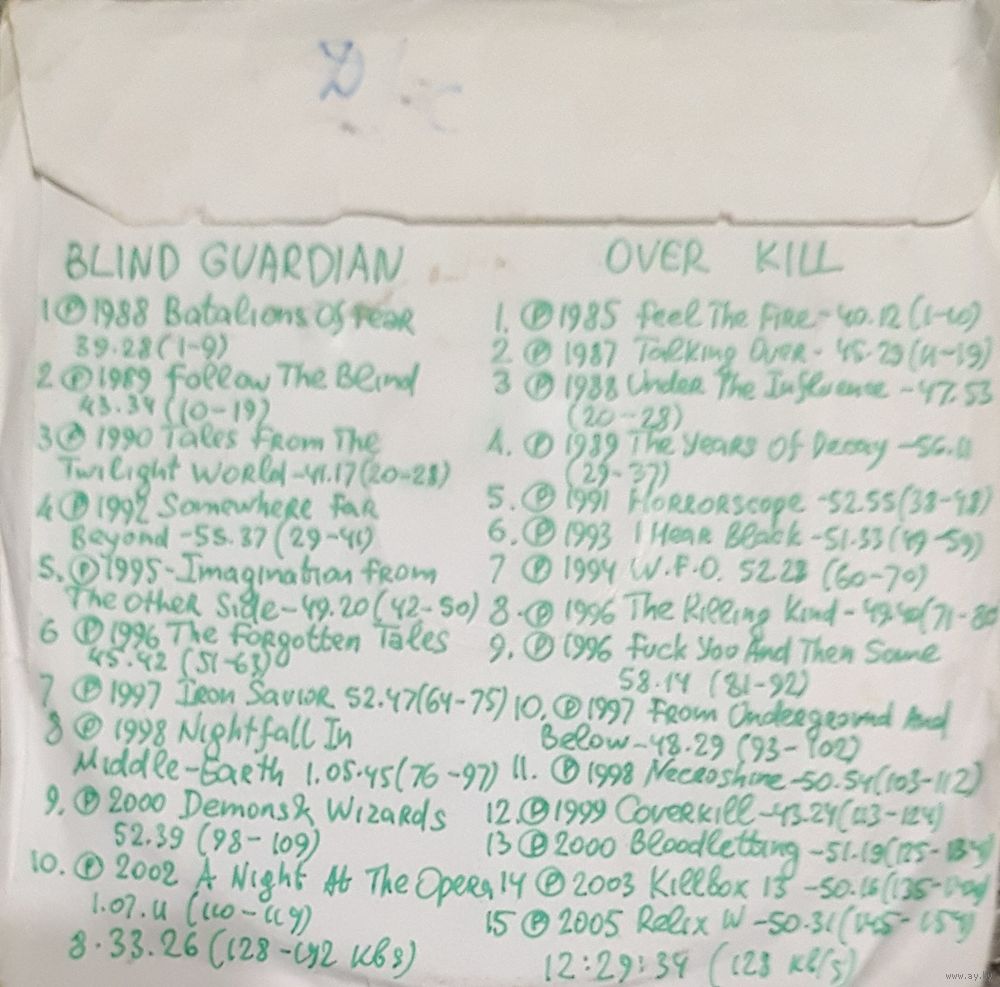 BLIND GUARDIAN
1 Ⓟ 1988 Batalions Of Fear
39.28 (1-9)
2 Ⓟ 1989 Follow The Blind
43.34 (10-19)
3 Ⓟ 1990 Tales From The
Twilight World - 41.17 (20-28)
4 Ⓟ 1992 Somewhere Far
Beyond - 55.37 (29-41)
5. Ⓟ 1995 - Imagination From
The Other Side - 49.20 (42-50)
6 Ⓟ 1996 The Forgotten Tales
45.42 (51-63)
7 Ⓟ 1997 Iron Savior 52.47 (64-75)
8 Ⓟ 1998 Nightfall In
Middle-Earth 1.05.45 (76-97)
9. Ⓟ 2000 Demons & Wizards
52.39 (98-109)
10. Ⓟ 2002 A Night At The Opera
1.07.11 (110-119)
8.33.26 (128-192 Kbs)
OVER KILL
1. Ⓟ 1985 Feel The Fire - 40.12 (1-10)
2 Ⓟ 1987 Talking Over - 45.29 (11-19)
3 Ⓟ 1988 Under The Influence - 47.53
(20-28)
4. Ⓟ 1989 The Years Of Decay - 56.11
(29-37)
5. Ⓟ 1991 Horrorscope - 52.55 (38-48)
6. Ⓟ 1993 I Hear Black - 51.33 (49-59)
7 Ⓟ 1994 W.F.O. 52.28 (60-70)
8. Ⓟ 1996 The Killing Kind - 49.40 (71-80
9. Ⓟ 1996 Fuck You And Then Some
58.14 (81-92)
10. Ⓟ 1997 From Underground And
Below - 48.29 (93-102)
11. Ⓟ 1998 Necroshine - 50.54 (103-112)
12. Ⓟ 1999 Coverkill - 43.24 (113-124)
13 Ⓟ 2000 Bloodletting - 51.19 (125-134)
14 Ⓟ 2003 Killbox 13 - 50.16
15 Ⓟ 2005 Relix W - 50.31 (145-154)
12:29:34 (128 Kb/s)
www.ay.by